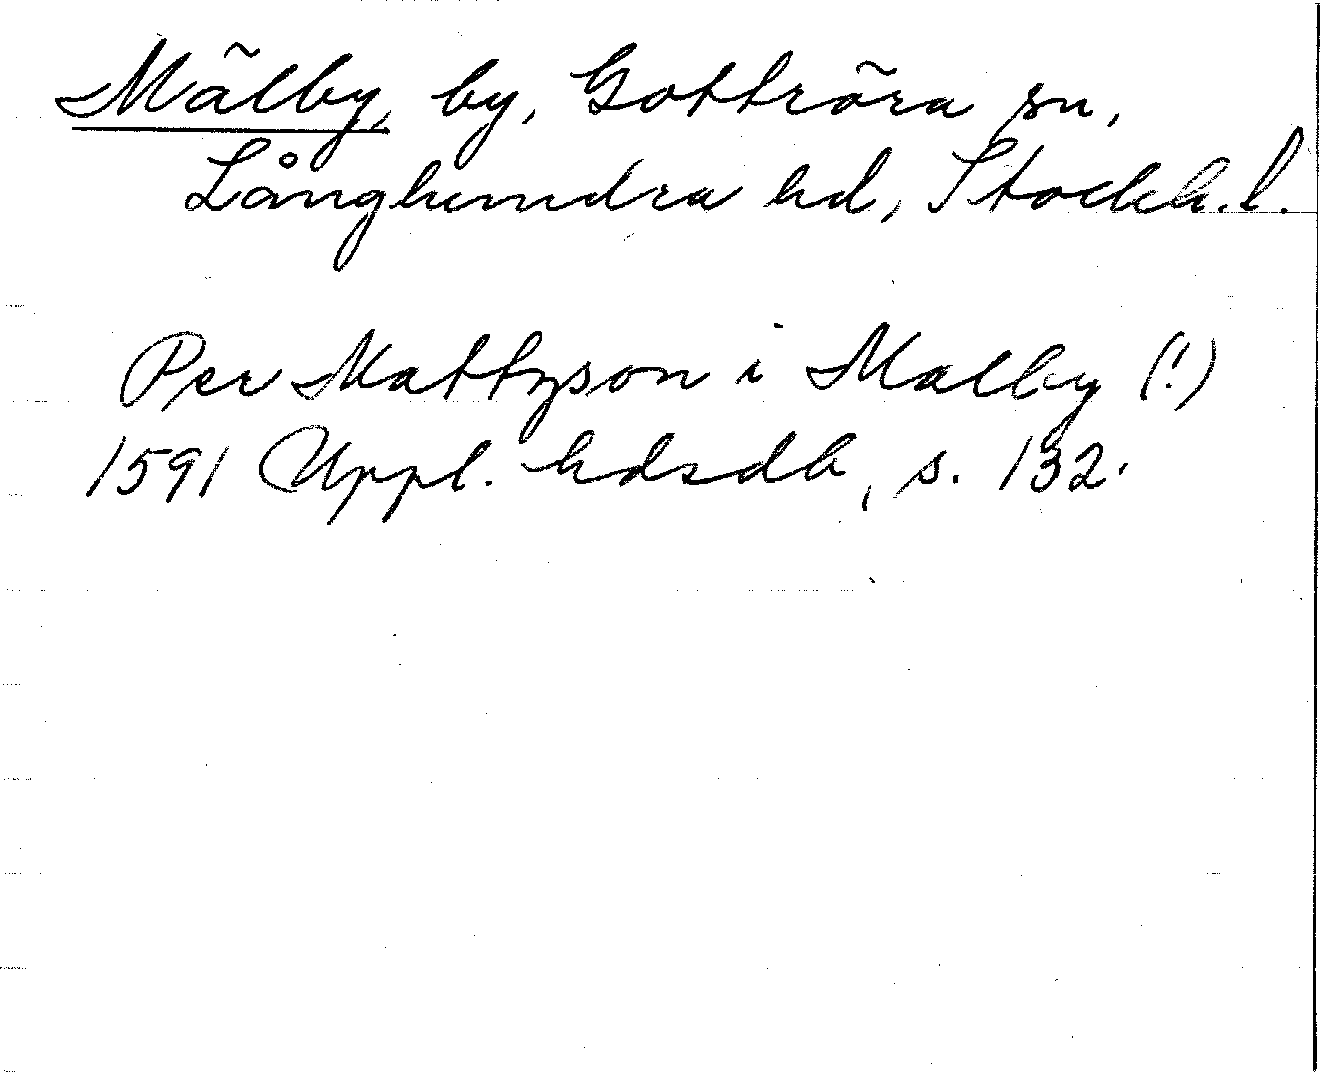 Mälby, by, Gottröra sn,
Långhundra hd, Stockh. l.
Per Mattzson i Malby (!)
1591 Uppl. hdsdb, s. 132.